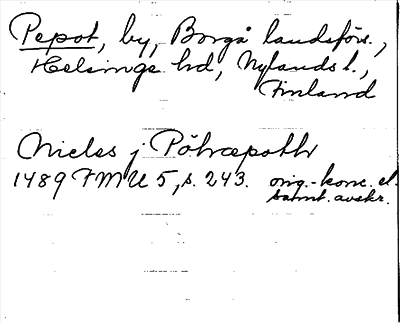 Pepot, by, Borgå landsförs.,
Helsinge hd, Nylands l.,
Finland
Nicles j Pötræpothr
1489 FMU 5, s. 243. orig.-konc. el.
samt. avskr.